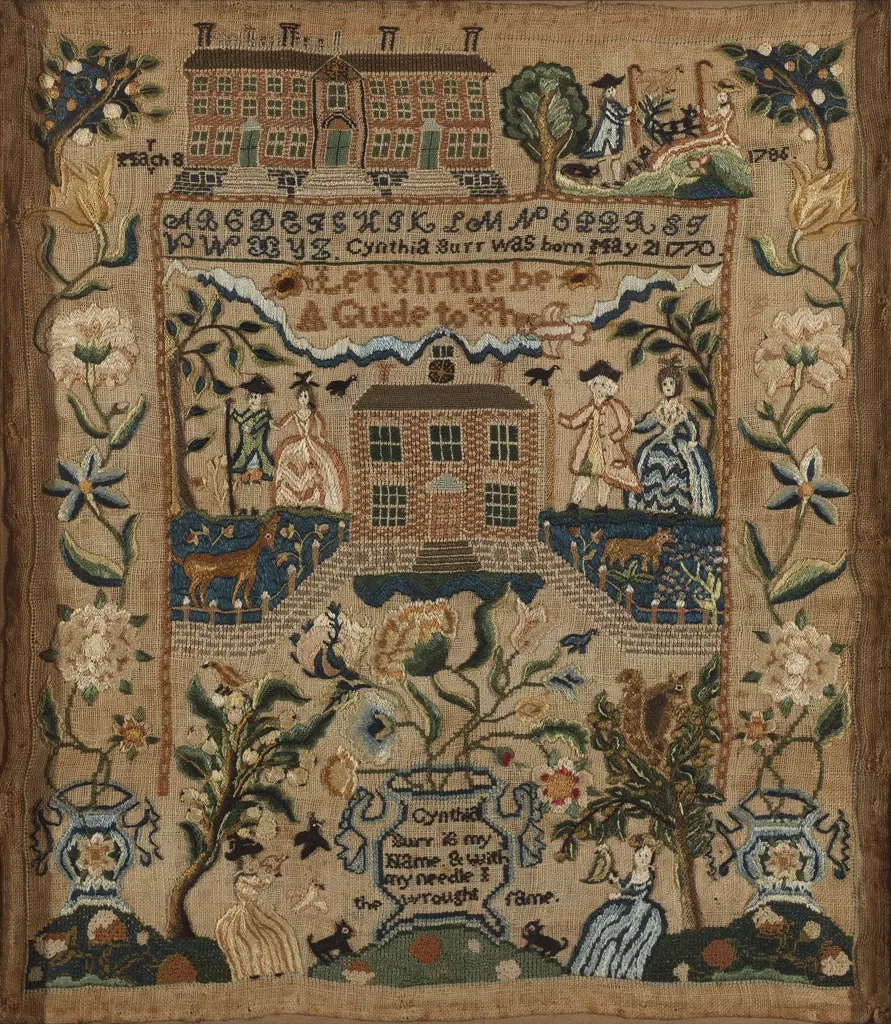 March 8
1786.
A B C D E F G H I K L M N O P Q R S T
V W X Y Z. Cynthia Burr was born May 21 1770.
Let Virtue be
A Guide to The
Cynthia
Burr is my
Name & with
my needle I
the wrought ſame.